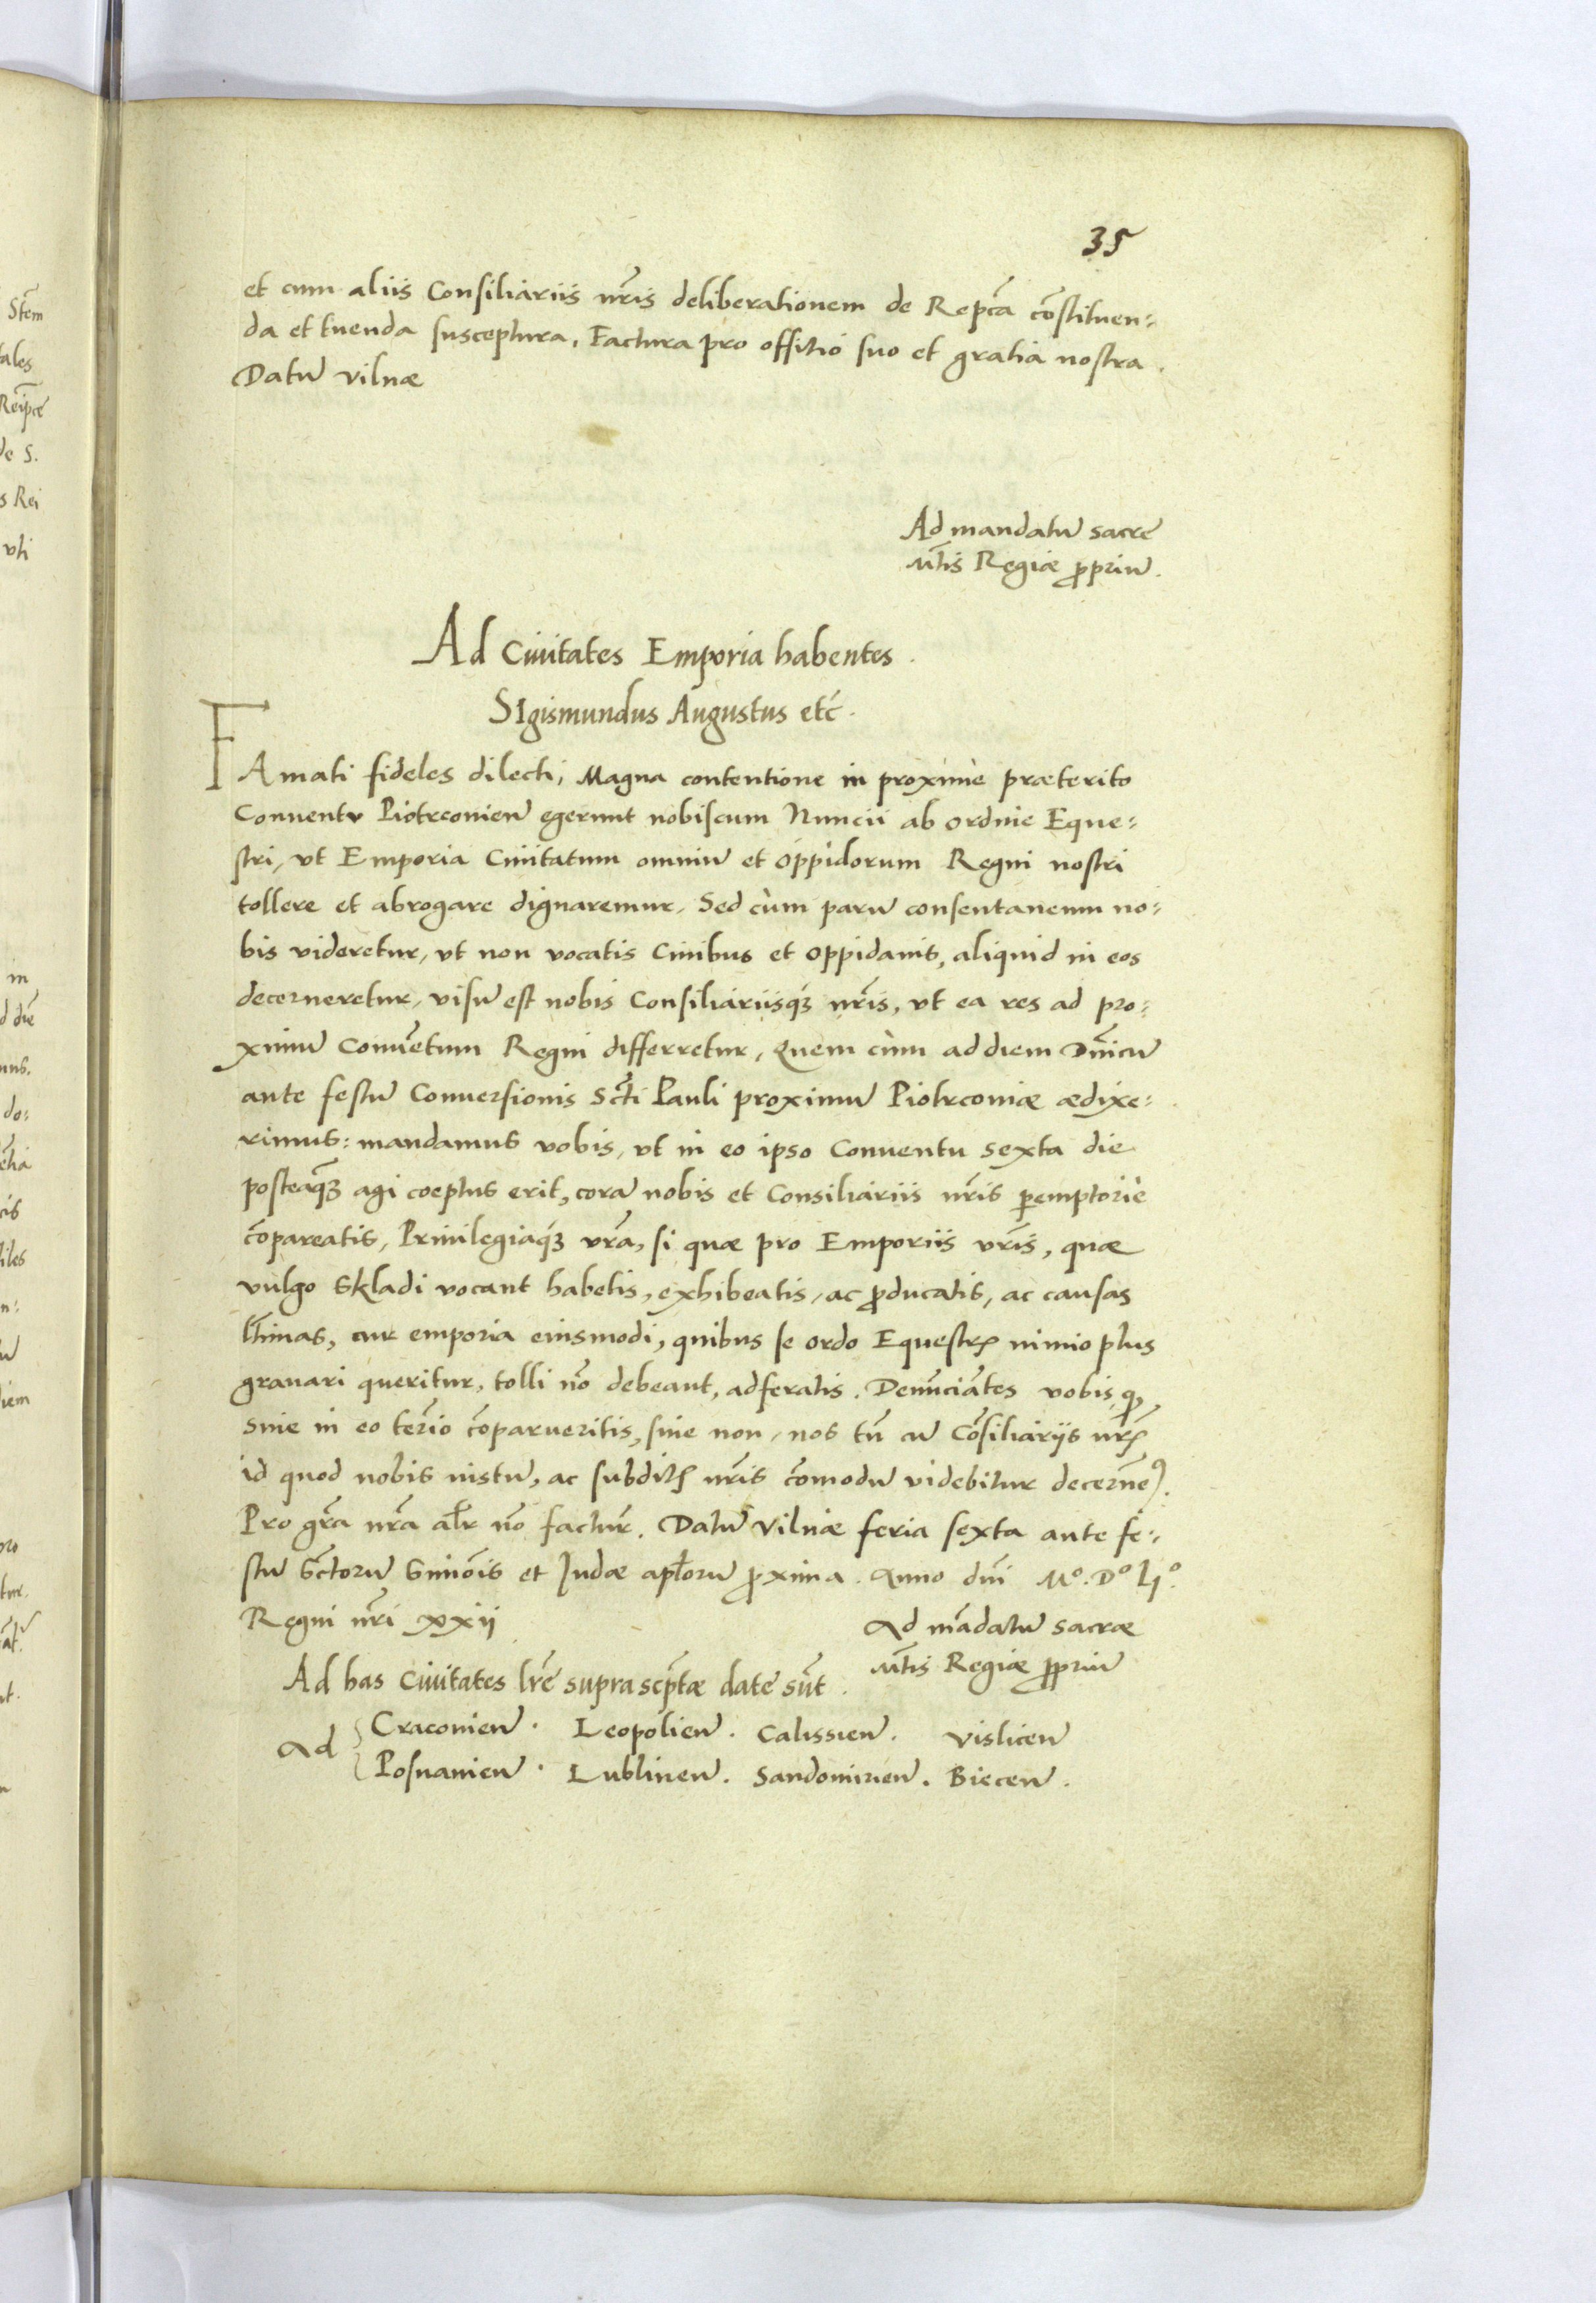 35
et cum aliis Consiliariis nr̃is deliberationem de Repca͂ co͂stituen:
da et tuenda susceptura, Factura pro offitio suo et gratia nostra.
Datu͂ Vilnæ
Ad mandatu͂ sacre
Mt͂is Regiæ ꝓpriu͂.
Ad Civitates Emporia habentes.
SIgismundus Augustus etc͂.
FAmati fideles dilecti, Magna contentione in proxime præterito
Conventv Piotrconien͂ egerunt nobiscum Nuncii ab ordine Eque:
stri, vt Emporia Civitatum omniu͂ et oppidorum Regni nostri
tollere et abrogare dignaremur, Sed cùm paru͂ consentaneum no:
bis videretur, vt non vocatis Civibus et oppidanis, aliquid in eos
decerneretur, visu͂ est nobis Consiliariisqȝ nr̃is, vt ea res ad pro:
ximu͂ Conue͂tum Regni differretur, Quem cùm ad diem Dn͂icu͂
ante festu͂ Conversionis Sct͂i Pauli proximu͂ Piotrconiæ ædixe:
rimus: mandamus vobis, vt in eo ipso Conventu sexta die
posteaqȝ agi coeptus erit, cora͂ nobis et Consiliariis nr̃is ꝑemptoriè
co͂pareatis, Privilegiaqȝ vr̃a, si quæ pro Emporiis vr̃is, quæ
vulgo Skladi vocant habetis, exhibeatis, ac ꝓducatis, ac causas
lt͂imas, cur emporia eiusmodi, quibus se ordo Equestrꝭ nimio plus
gravari queritur, tolli no͂ debeant, adferatis. Denu͂cia͂tes vobis, ꝙ
sive in eo ter͂io co͂parueritis, sive non, nos tn͂ cu͂ Co͂siliarijs nrꝭ
id quod nobis iustu͂, ac subditꝭ nr̃is co͂modu͂ videbitur decerneꝰ.
Pro gr̃a nr̃a alr̃ no͂ factur͂. Datu͂ Vilnæ feria sexta ante fe:
stu͂ Sct͂oru͂ Simo͂is et Judæ apl͂oru͂ ꝓxima. Anno dn͂i Mº. Dº Ljº.
Regni nr̃i xxij
Ad ma͂datu͂ sacræ
Mt͂is Regiæ ꝓpriu͂
Ad has Civitates lr̃e supra scp͂tæ date su͂t.
Ad { Craconien͂. Leopolien͂. Calissien͂. Vislicen͂
Posnanien͂. Lublinen͂. Sandomirien͂. Biecen͂.